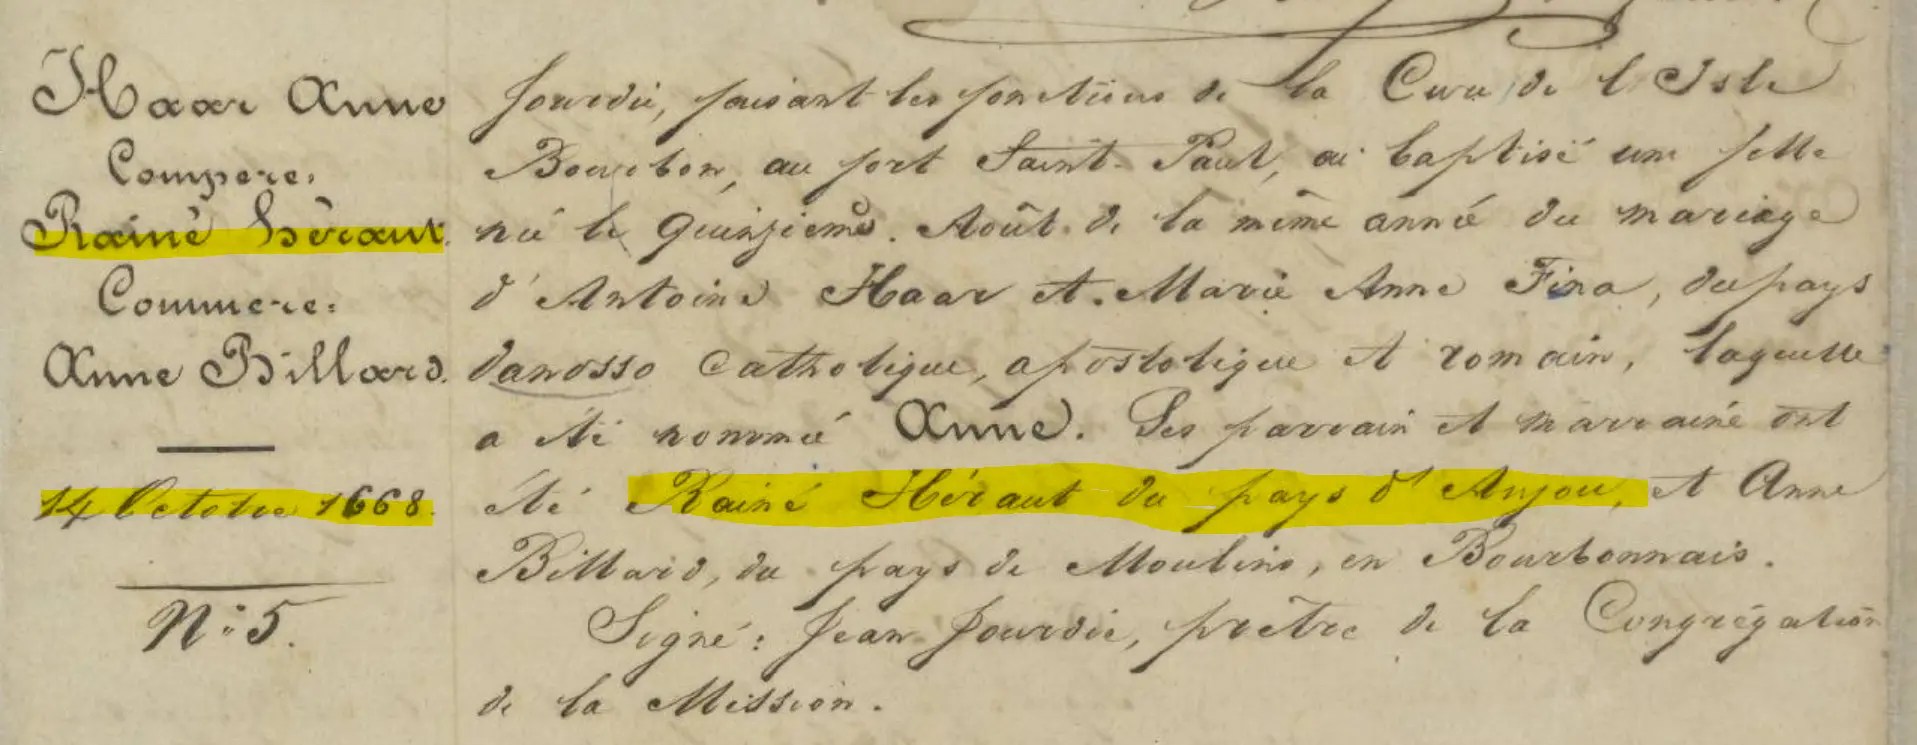 Haar Anne
Compere:
Rainé héraut.
Commere:
Anne Billard.
14 Octobre 1668.
N:5.
Jourdié, faisant les fonctions de la Cure de l'Isle
Bourbon, au fort Saint-Paul, ai baptisé une fille
née le quinzième. Août de la même année du mariage
d'Antoine Haar et. Marie Anne Fina, du pays
danosso catholique, apostolique et romain, laquelle
a été nommée Anne. Ses parrain et marraine ont
été Rainé Héraut du pays d'Anjou, et Anne
Billard, du pays de Moulins, en Bourbonnais.
Signé: Jean Jourdié, prêtre de la Congrégation
de la Mission.